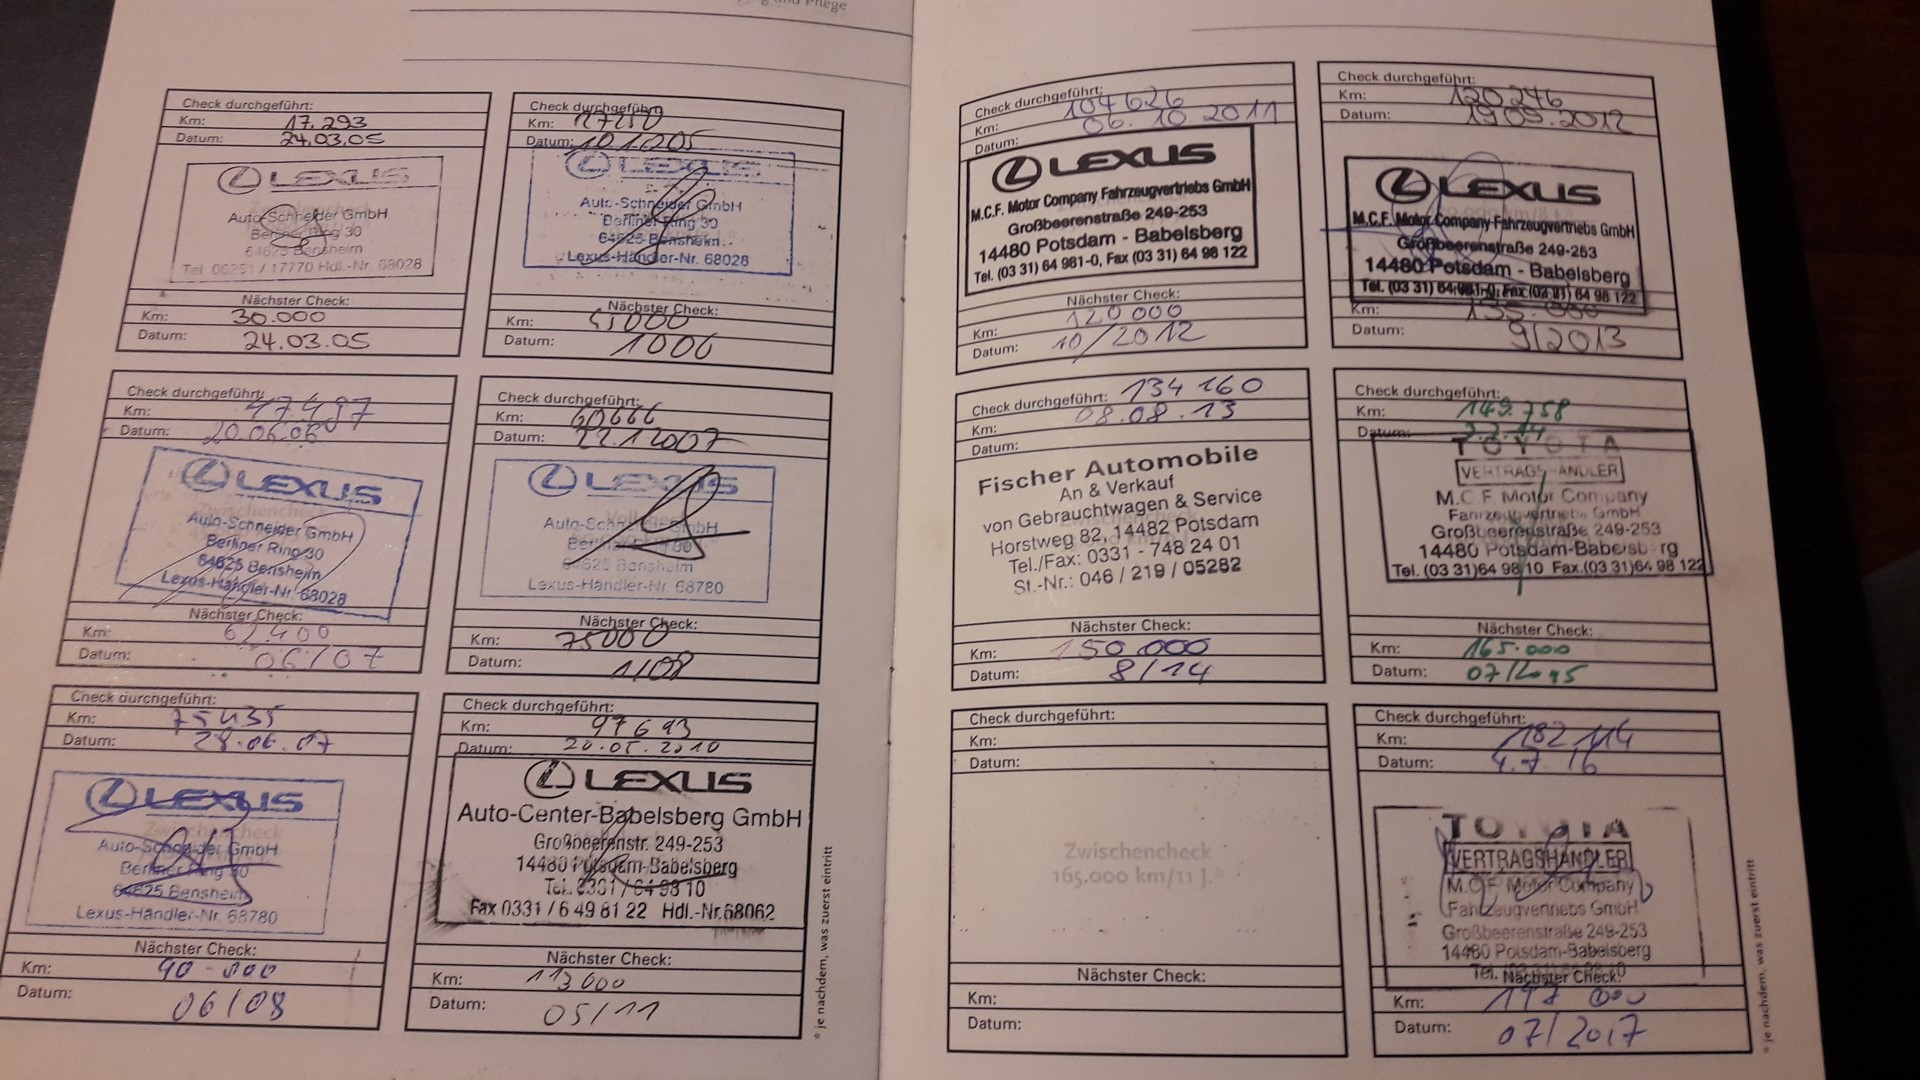 Pflege
Check durchgeführt:
Km: 17.293
Datum: 24.03.05
LEXUS
Auto-Schneider GmbH
Berliner Ring 30
64625 Bensheim
Tel. 06251 / 17770 Hdl.-Nr. 68028
Nächster Check:
Km: 30.000
Datum: 24.03.05
Check durchgeführt:
Km: 27250
Datum: 101205
LEXUS
Auto-Schneider GmbH
Berliner Ring 30
64625 Bensheim
Lexus-Händler-Nr. 68028
Nächster Check:
Km: 45000
Datum: 1006
Check durchgeführt:
Km: 47497
Datum: 20.06.06
LEXUS
Auto-Schneider GmbH
Berliner Ring 30
64625 Bensheim
Lexus-Händler-Nr. 68028
Nächster Check:
Km: 62.400
Datum: 06/07
Check durchgeführt:
Km: 60666
Datum: 22.12007
LEXUS
Auto-Schneider GmbH
Berliner Ring 30
64625 Bensheim
Lexus-Händler-Nr. 68780
Nächster Check:
Km: 75000
Datum: 1/08
Check durchgeführt:
Km: 75435
Datum: 28.06.07
LEXUS
Zwischencheck
Auto-Schneider GmbH
Berliner Ring 30
64625 Bensheim
Lexus-Händler-Nr. 68780
Nächster Check:
Km: 90.000
Datum: 06/08
Check durchgeführt:
Km: 97693
Datum: 20.05.2010
LEXUS
Auto-Center-Babelsberg GmbH
Großbeerenstr. 249-253
14480 Potsdam-Babelsberg
Tel. 0331 / 64 98 10
Fax 0331 / 6 49 81 22 Hdl.-Nr.68062
Nächster Check:
Km: 113000
Datum: 05/11
* je nachdem, was zuerst eintritt
Check durchgeführt:
Km: 104626
Datum: 06.10.2011
LEXUS
M.C.F. Motor Company Fahrzeugvertriebs GmbH
Großbeerenstraße 249-253
14480 Potsdam - Babelsberg
Tel. (03 31) 64 981-0, Fax (03 31) 64 98 122
Nächster Check:
Km: 120 000
Datum: 10/2012
Check durchgeführt:
Km: 120246
Datum: 19.09.2012
LEXUS
M.C.F. Motor Company Fahrzeugvertriebs GmbH
Großbeerenstraße 249-253
14480 Potsdam - Babelsberg
Tel. (03 31) 64 981-0, Fax (03 31) 64 98 122
Km: 135.000
Datum: 9/2013
Check durchgeführt:
Km: 134 160
Datum: 08.08.13
Fischer Automobile
An & Verkauf
von Gebrauchtwagen & Service
Horstweg 82, 14482 Potsdam
Tel./Fax: 0331 - 748 24 01
St.-Nr.: 046 / 219 / 05282
Nächster Check:
Km: 150.000
Datum: 8/14
Check durchgeführt:
Km: 149.758
Datum:
TOYOTA
VERTRAGSHÄNDLER
M.C.F. Motor Company
Fahrzeugvertriebs GmbH
Großbeerenstraße 249-253
14480 Potsdam-Babelsberg
Tel. (03 31)64 98 10 Fax.(03 31)64 98 122
Nächster Check:
Km: 165.000
Datum: 07/2015
Check durchgeführt:
Km:
Datum:
Zwischencheck
165.000 km/11 J.*
Nächster Check:
Km:
Datum:
Check durchgeführt:
Km: 182 114
Datum: 4.7.16
TOYOTA
VERTRAGSHÄNDLER
M.C.F. Motor Company
Fahrzeugvertriebs GmbH
Großbeerenstraße 249-253
14480 Potsdam-Babelsberg
Tel.
Nächster Check:
Km: 197 000
Datum: 07/2017
* je nachdem, was zuerst eintritt